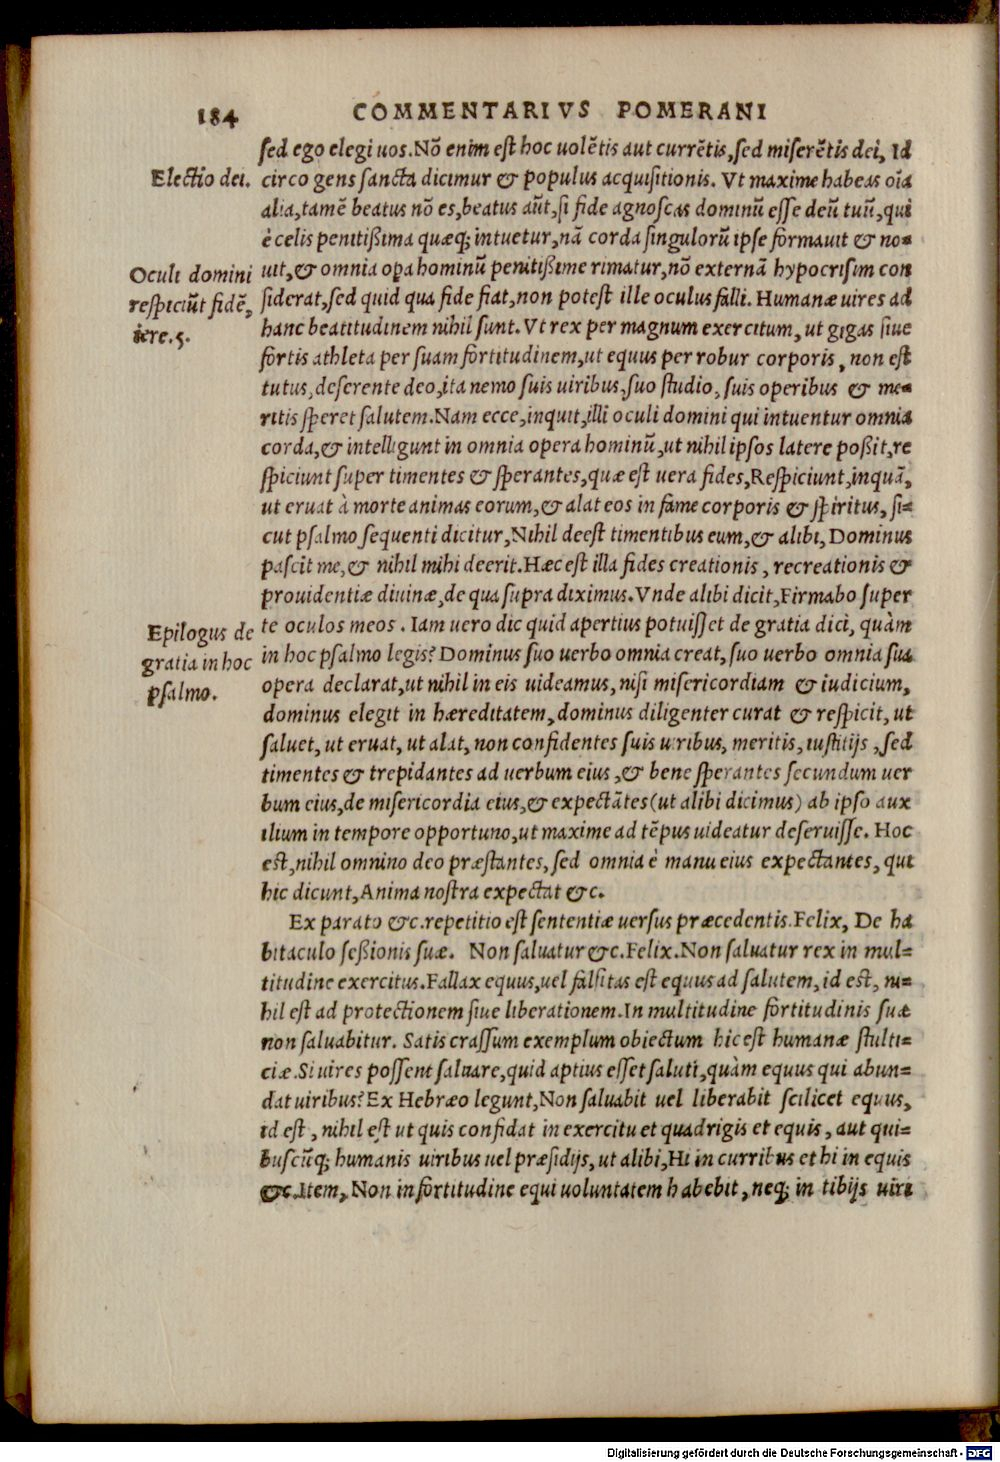 184 COMMENTARIVS POMERANI
sed ego elegi uos. Nõ enim est hoc uolẽtis aut currẽtis, sed miserẽtis dei, Id
Electio dei.
circo gens sancta dicimur & populus acquisitionis. Vt maxime habeas oĩa
alia, tamẽ beatus nõ es, beatus aũt, si fide agnoscas dominũ esse deũ tuũ, qui
è celis penitißima quæq; intuetur, nã corda singulorũ ipse formauit & no-
Oculi domini
respiciũt fidẽ,
iere.5.
uit, & omnia opa hominũ penitißime rimatur, nõ externã hypocrisim con
siderat, sed quid qua fide fiat, non potest ille oculus falli. Humanæ uires ad
hanc beatitudinem nihil sunt. Vt rex per magnum exercitum, ut gigas siue
fortis athleta per suam fortitudinem, ut equus per robur corporis, non est
tutus, deserente deo, ita nemo suis uiribus, suo studio, suis operibus & me-
ritis speret salutem. Nam ecce, inquit, illi oculi domini qui intuentur omnia
corda, & intelligunt in omnia opera hominũ, ut nihil ipsos latere poßit, re
spiciunt super timentes & sperantes, quæ est uera fides, Respiciunt, inquã,
ut eruat à morte animas eorum, & alat eos in fame corporis & spiritus, si-
cut psalmo sequenti dicitur, Nihil deest timentibus eum, & alibi, Dominus
pascit me, & nihil mihi deerit. Hæc est illa fides creationis, recreationis &
prouidentiæ diuinæ, de qua supra diximus. Vnde alibi dicit, Firmabo super
Epilogus de
gratia in hoc
psalmo.
te oculos meos. Iam uero dic quid apertius potuisset de gratia dici, quàm
in hoc psalmo legis? Dominus suo uerbo omnia creat, suo uerbo omnia sua
opera declarat, ut nihil in eis uideamus, nisi misericordiam & iudicium,
dominus elegit in hæreditatem, dominus diligenter curat & respicit, ut
saluet, ut eruat, ut alat, non confidentes suis uiribus, meritis, iustitijs, sed
timentes & trepidantes ad uerbum eius, & bene sperantes secundum uer
bum eius, de misericordia eius, & expectãtes (ut alibi dicimus) ab ipso aux
ilium in tempore opportuno, ut maxime ad tẽpus uideatur deseruisse. Hoc
est, nihil omnino deo præstantes, sed omnia è manu eius expectantes, qui
hic dicunt, Anima nostra expectat &c.
Ex parato &c. repetitio est sententiæ uersus præcedentis. Felix, De ha
bitaculo seßionis suæ. Non saluatur &c. Felix. Non saluatur rex in mul-
titudine exercitus. Fallax equus, uel falsitas est equus ad salutem, id est, ni-
hil est ad protectionem siue liberationem. In multitudine fortitudinis suæ
non saluabitur. Satis crassum exemplum obiectum hic est humanæ stulti-
ciæ. Si uires possent saluare, quid aptius esset saluti, quàm equus qui abun-
dat uiribus? Ex Hebræo legunt, Non saluabit uel liberabit scilicet equus,
id est, nihil est ut quis confidat in exercitu et quadrigis et equis, aut qui-
buscũq; humanis uiribus uel præsidijs, ut alibi, Hi in curribus et hi in equis
&c. Item, Non in fortitudine equi uoluntatem habebit, neq; in tibijs uiri
Digitalisierung gefördert durch die Deutsche Forschungsgemeinschaft - DFG